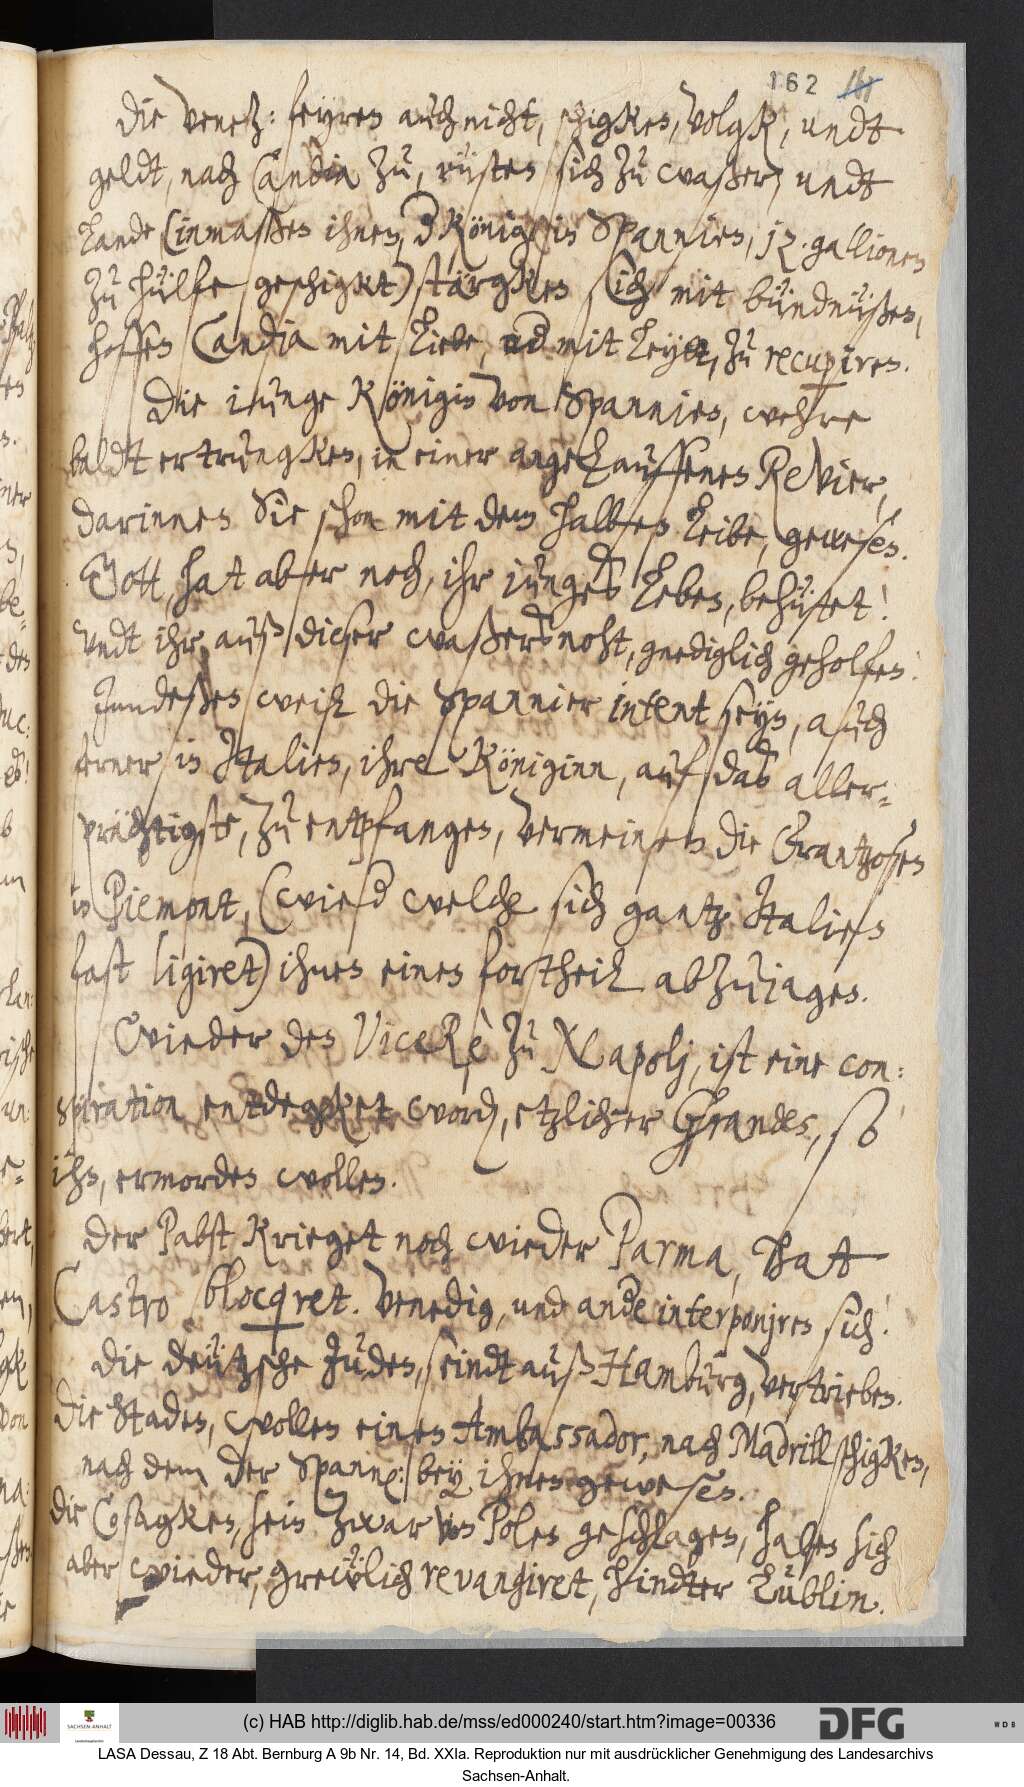 162 161
Die Venetz: feyren auch nicht, schigken, volgk, undt
geldt, nach Candia zu, rüsten sich zu waßer, undt
Lande (inmaßen ihnen, der König in Spannien, 12. gallionen
zu hülfe geschigkt) stärgken sich mit bündnüßen,
hoffen Candia mit Liebe, und mit Leydt, zu recupiren.
Die iunge Königin von Spannien, wehre
baldt ertrungken, in einer angelauffenen Revier,
darinnen Sie schon mit dem halben Leibe, gewesen.
Gott, hat aber noch, ihr junges Leben, behütet!
undt ihr, auß dieser waßersnoht, gnediglich geholfen!
Jundeßen weil die Spannier intent seyn, auch
ferner in Italien, ihre Königinn, auf das aller-
prächtigste, zu entpfangen, vermeinen die Frantzosen
in Piemont, (wieder welche sich gantz Italien
fast ligiret) ihnen einen fortheil abzujagen.
Wieder den ViceRè zu Napolj, ist eine con:
spiration entdegket worden, etzlicher Grandes, so
ihn, ermorden wollen.
Der Pabst krieget noch wieder Parma, hat
Castro blocqret. Venedig, und andere interponjren sich!
Die deützsche Juden, seindt auß Hamburg, vertrieben.
Die Staden, wollen einen Ambassador, nach Madrill schigken,
nach dem der Spannische: bey ihnen gewesen.
die Cosagken, sein zwar von Polen geschlagen, haben sich
aber wieder, grewlich revangiret, hindter Lublin.
(c) HAB http://diglib.hab.de/mss/ed000240/start.htm?image=00336
SACHSEN-ANHALT
DFG
WDB
LASA Dessau, Z 18 Abt. Bernburg A 9b Nr. 14, Bd. XXIa. Reproduktion nur mit ausdrücklicher Genehmigung des Landesarchivs
Sachsen-Anhalt.